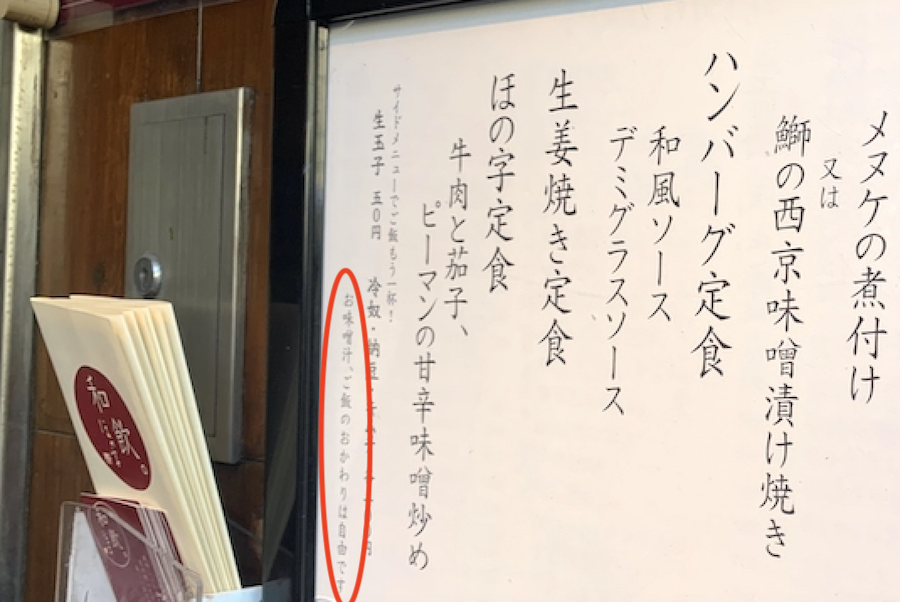 メヌケの煮付け
又は
鰤の西京味噌漬け焼き
ハンバーグ定食
和風ソース
デミグラスソース
生姜焼き定食
ほの字定食
牛肉と茄子、
ピーマンの甘辛味噌炒め
サイドメニューでご飯もう一杯!
生玉子 五〇円 冷奴・納豆
お味噌汁、ご飯のおかわりは自由です
和飲